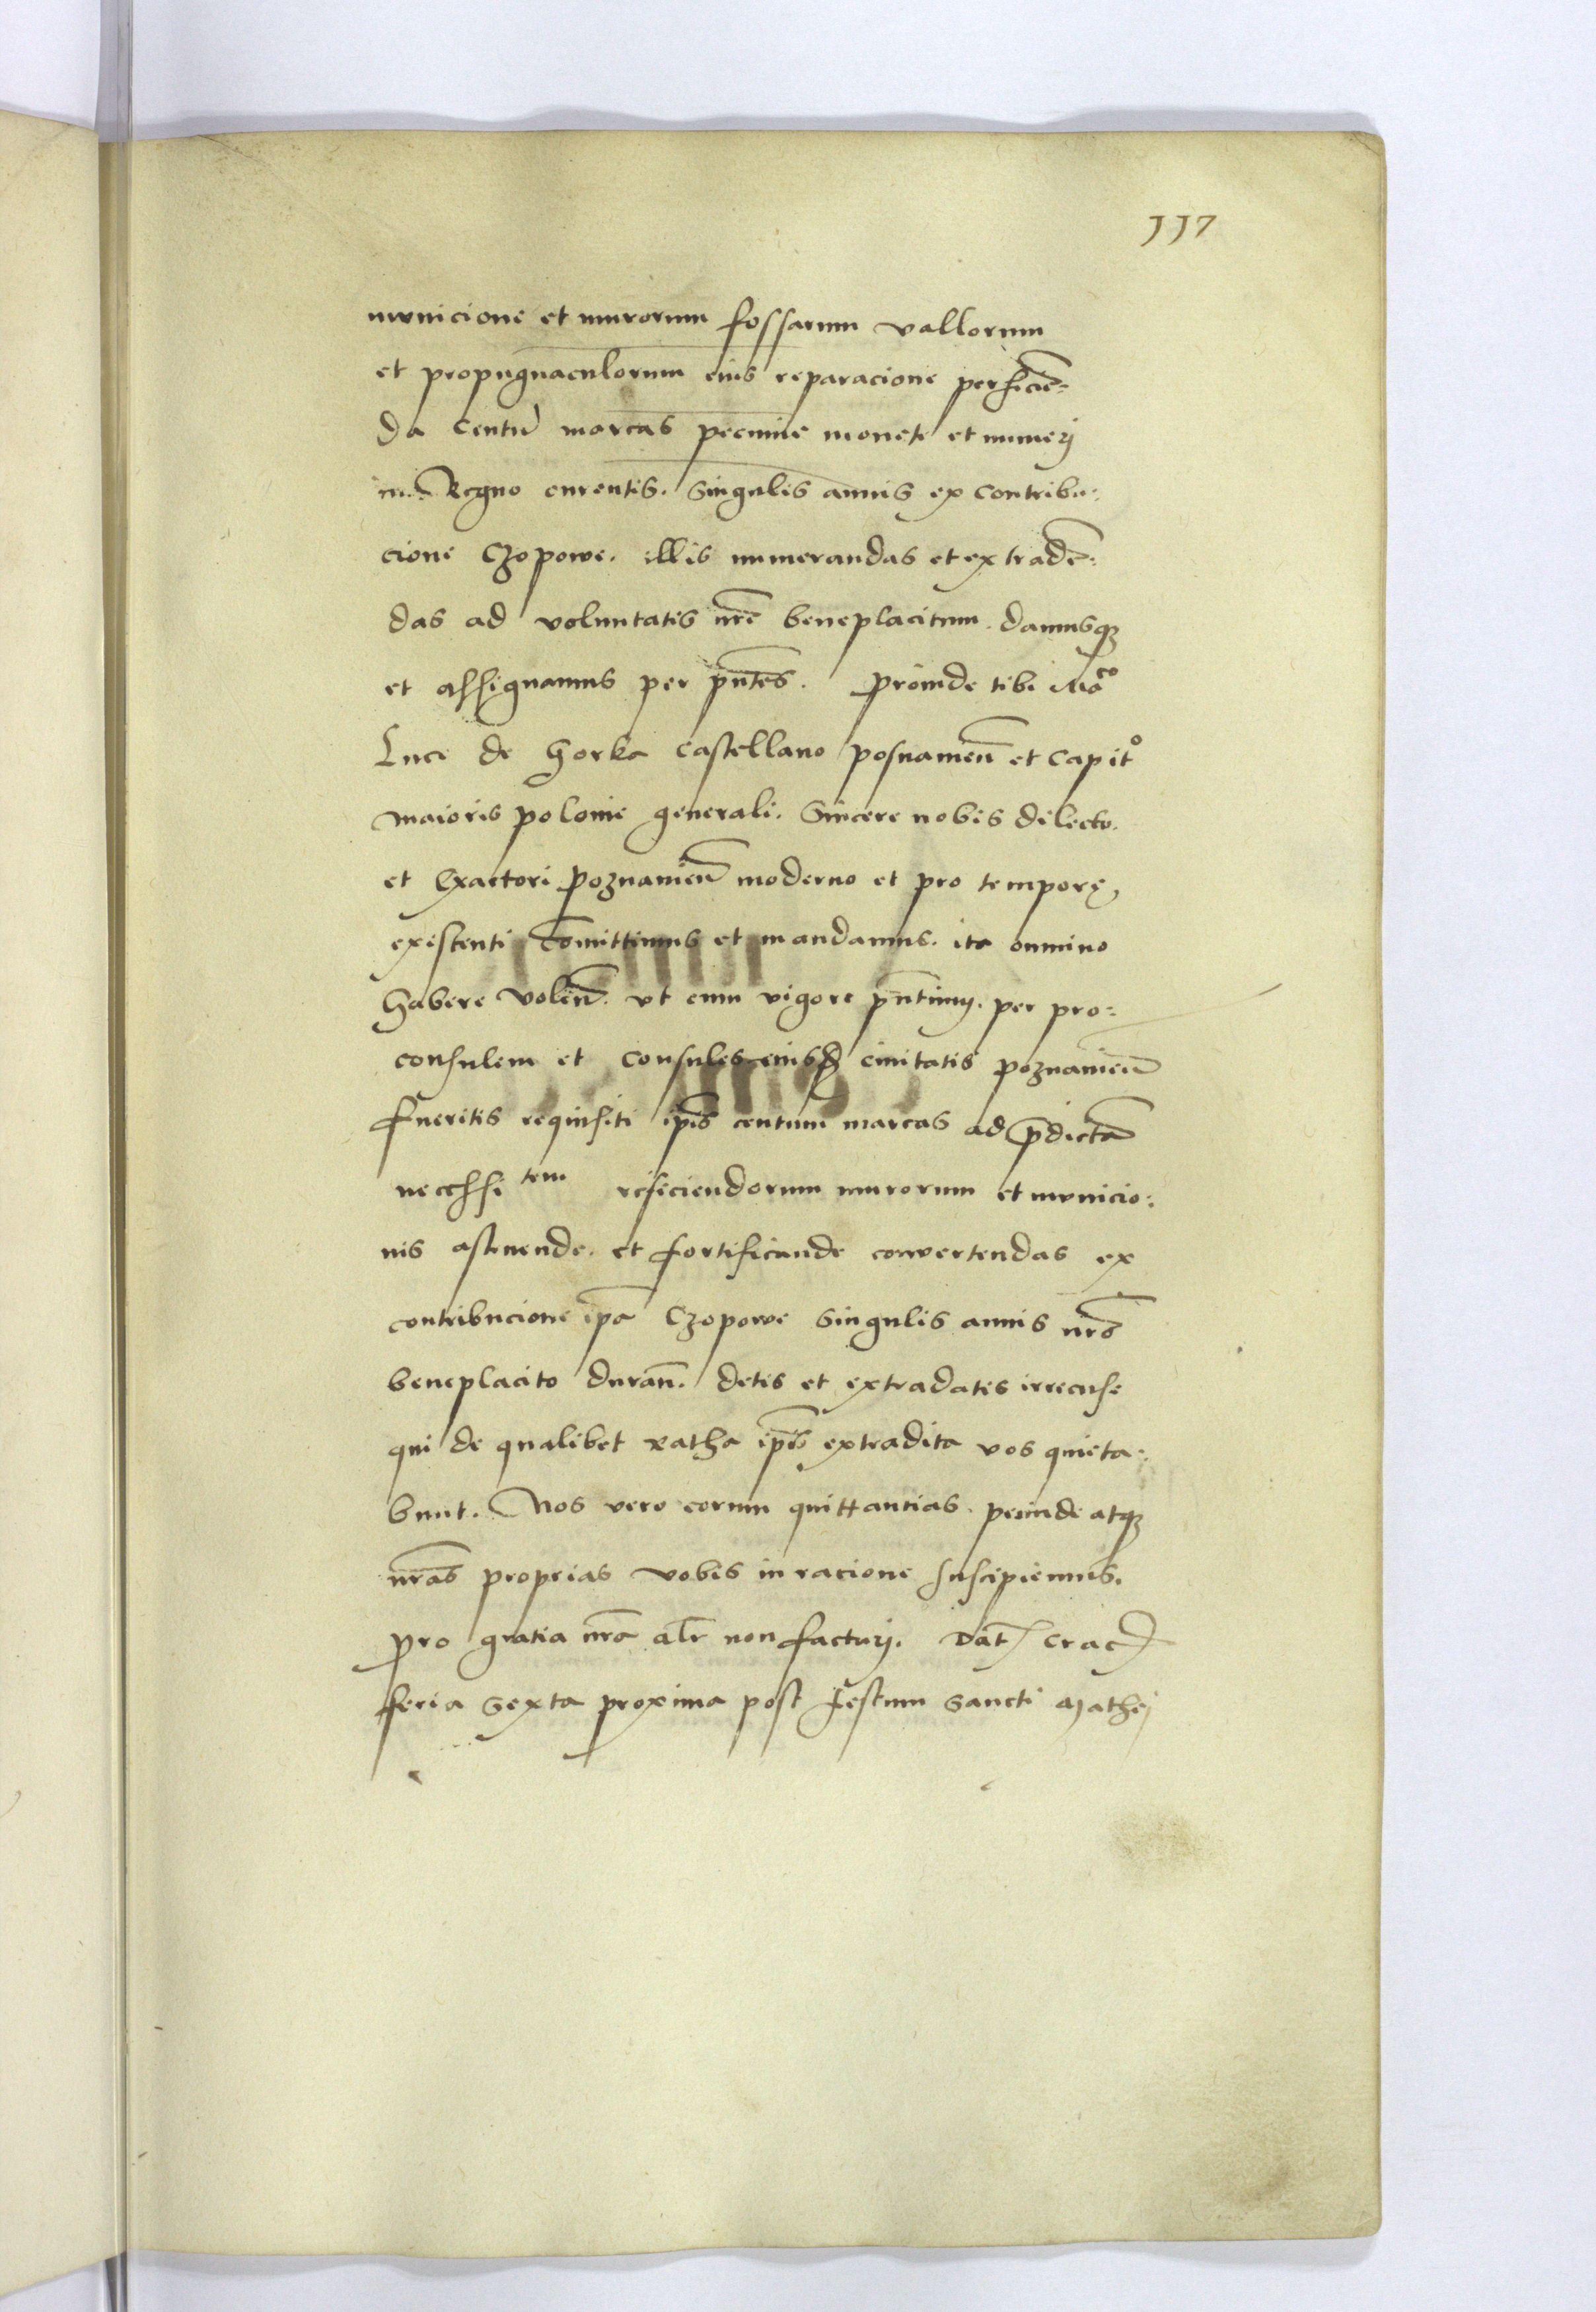 117
municione et murorum fossarum vallorum
et propugnaculorum eius reparacione perficiē=
da Centū marcas pecunie monete et numerj
in Regno currentis. Singulis annis ex contribu=
cione Czopowe. illis numerandas et extradē=
das ad voluntatis nrē beneplacitum. damusqꝫ
et assignamus per pn̄tes. Proinde tibi Mᶜᵒ
Luce de Gorka Castellano posnanien̄ et Capitº
maioris polonie generali. Sincere nobis dilecto.
et Exactori Poznanien̄ moderno et pro tempore,
existenti Com̄ittimus et mandamus. ita omnino
habere volen̄. vt cum vigore pn̄tium. per pro=
consulem et consules eiusd̄ ciuitatis poznanien̄
fueritis requisiti ip̄is centum marcas ad p̄dictā
necessitem reficiendorum murorum et municio=
nis astruende. et fortificande convertendas ex
contribucione ip̄a Czopowe Singulis annis nrō
beneplacito duran̄. detis et extradatis irrecuse
qui de qualibet ratha ip̄is extradita vos quieta=
bunt. Nos vero eorum quittancias perinde atqꝫ
nrās proprias vobis in racione suscipiemus.
pro gratia nrā alr̄ non facturj. Dat Crac
feria sexta proxima post festum sancti Mathej